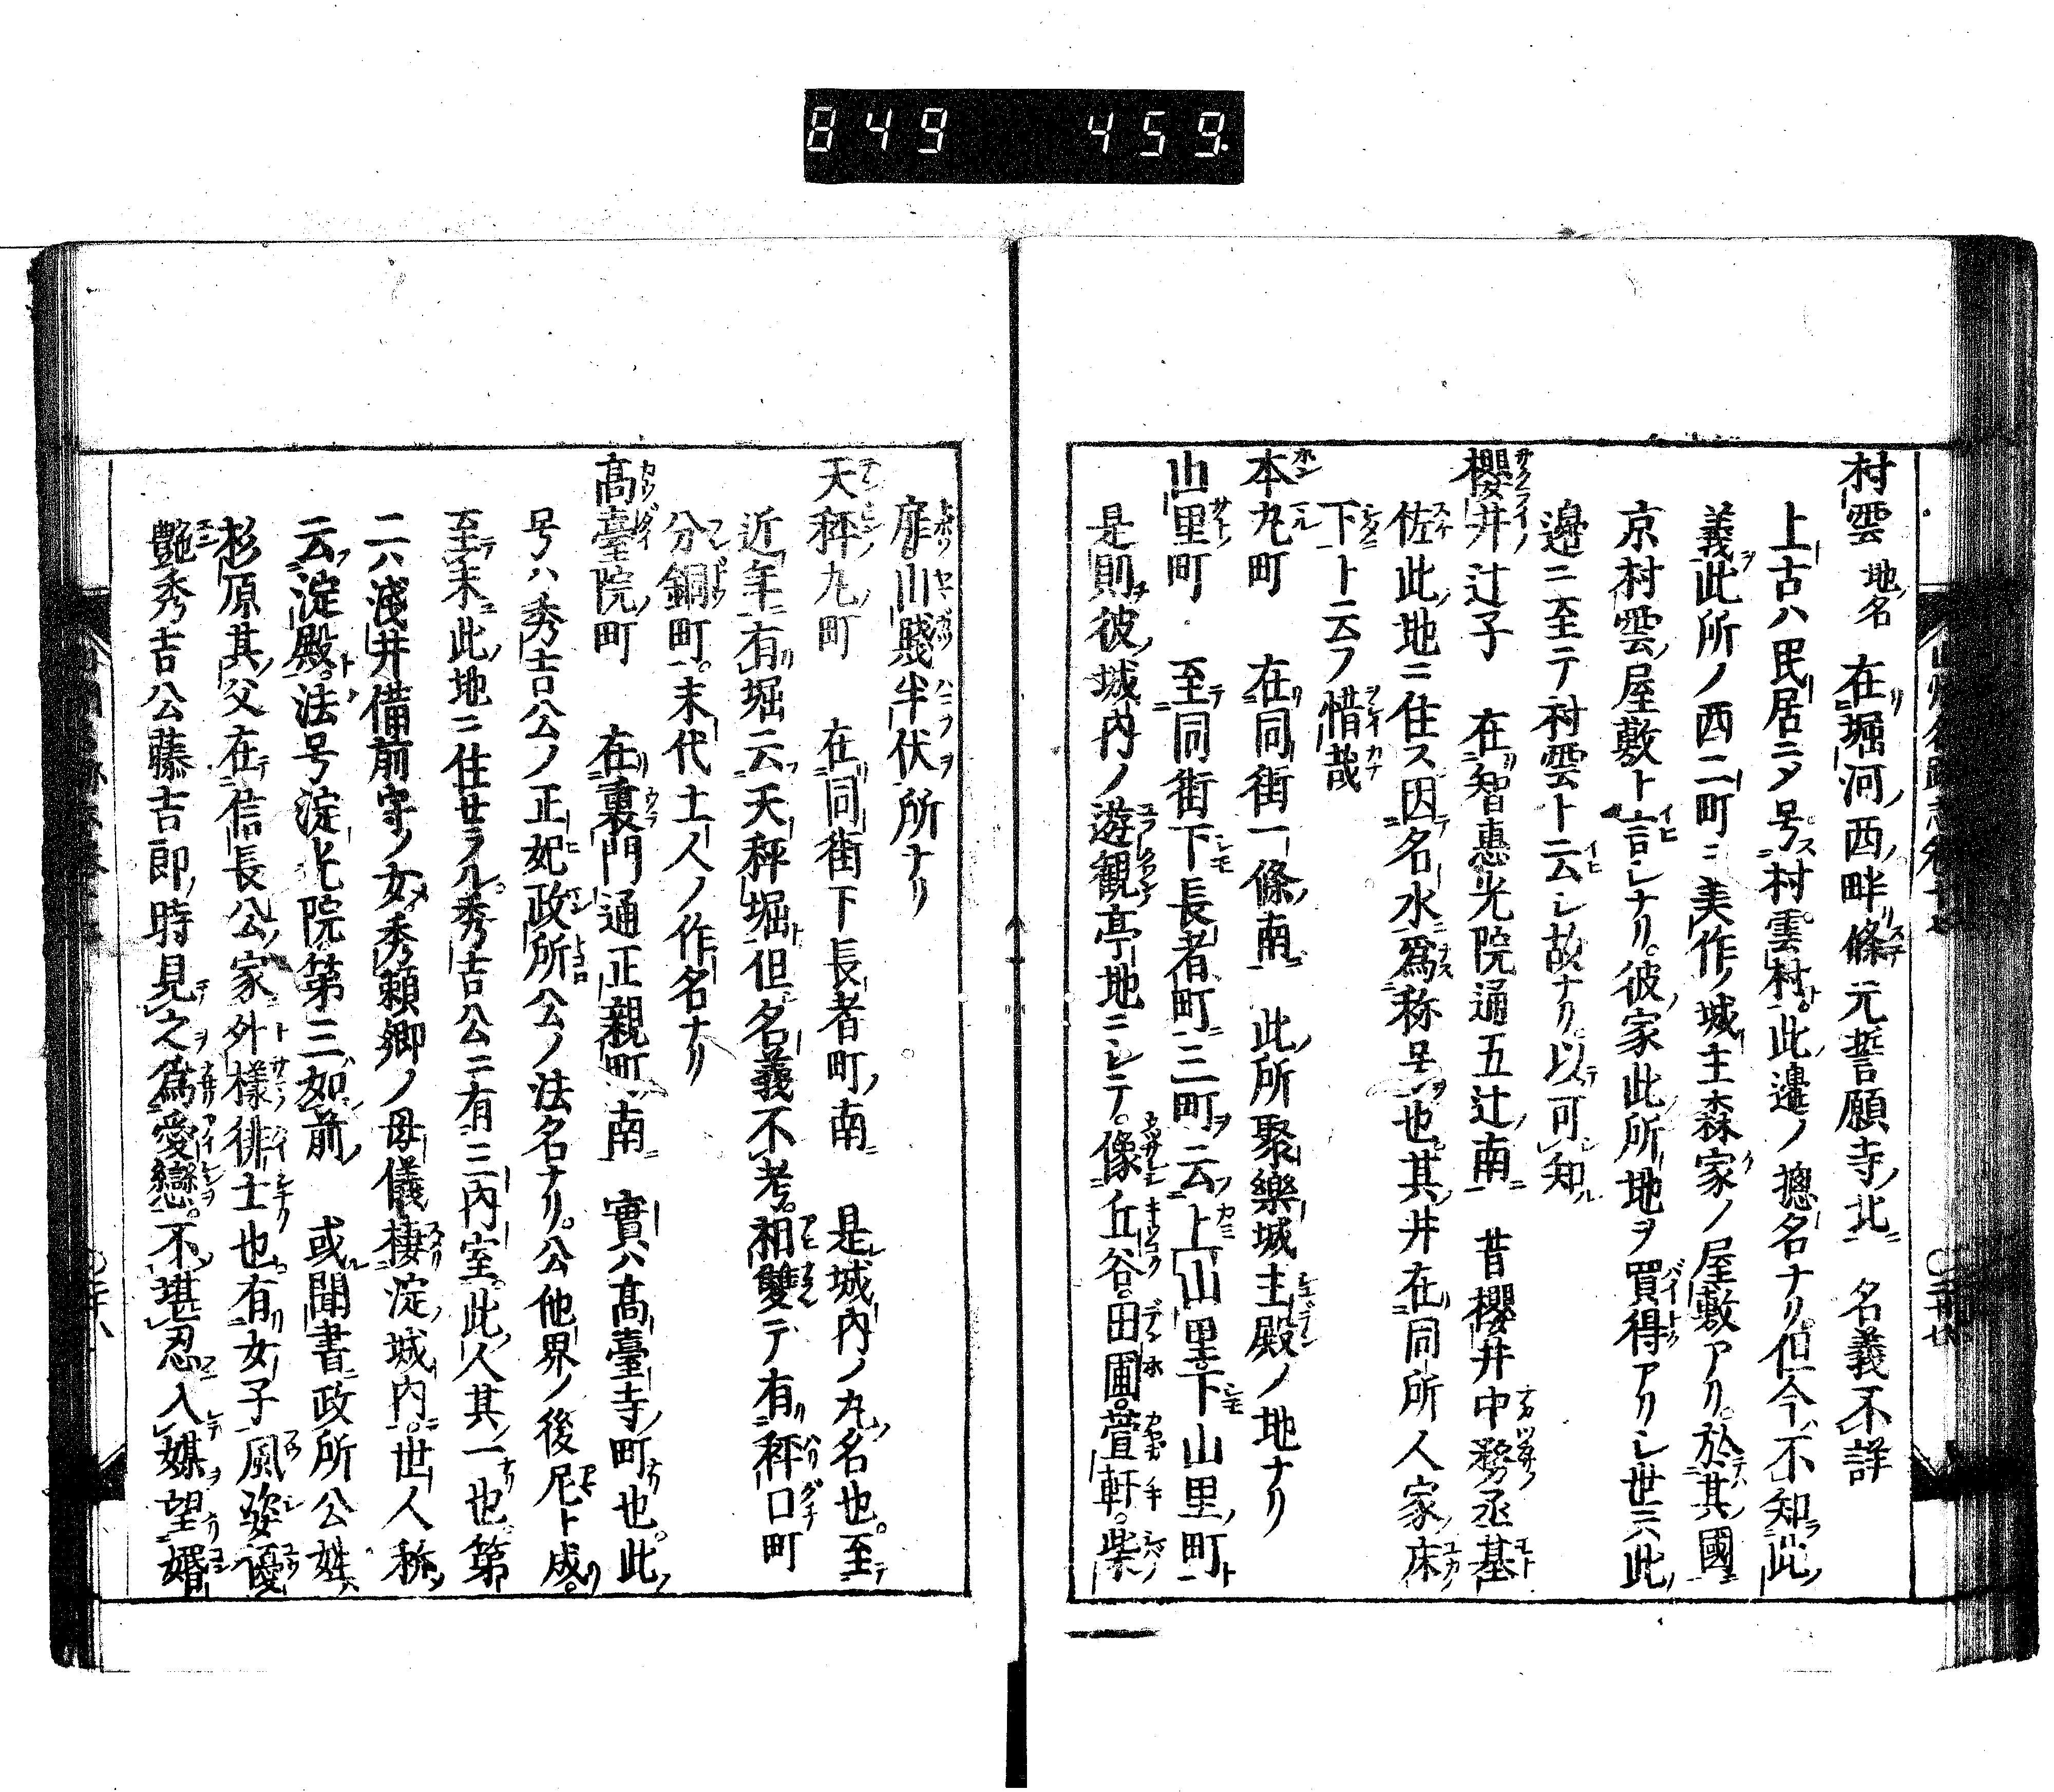 849 459.
村雲 地名 在堀河西畔條元誓願寺北 名義不詳
上古ハ民居ニメ号村雲村此邊ノ摠名ナリ但今不知此
義此所ノ西二町ニ美作城主森家ノ屋敷アリ於其國
京村雲屋敷ト言シナリ彼家此所地ヲ買得アリシ世ニハ此
邊ニ至テ村雲ト云シ故ナリ以可知
櫻井辻子 在智惠光院通五辻南 昔櫻井中務丞基
佐此地ニ住ス因名水爲称号也其井在同所人家床
下ト云フ惜哉
本丸町 在同街一條南 此所聚樂城主殿ノ地ナリ
山里町 至同街下長者町三町云上山里下山里町
是則彼城内ノ遊観亭地ニシテ像丘谷田圃萱軒柴
扉山賤半伏所ナリ
天秤丸町 在同街下長者町南 是城内ノ丸名也至
近年有堀云天秤堀但名義不考相雙テ有秤口町
分銅町末代土人ノ作名ナリ
高臺院町 在裏門通正親町南 實ハ高臺寺町也此
号ハ秀吉公ノ正妃政所公ノ法名ナリ公他界ノ後尼ト成
至末此地ニ住せラル秀吉公ニ有三内室此人其一也第
二ハ淺井備前守ノ女秀頼卿ノ母儀棲淀城内世人称
云淀殿法号淀光院第三如前 或聞書政所公姓
杉原其父在信長公家外樣徘士也有女子風姿優
艶秀吉公藤吉郎時見之為愛戀不堪忍入媒望婚